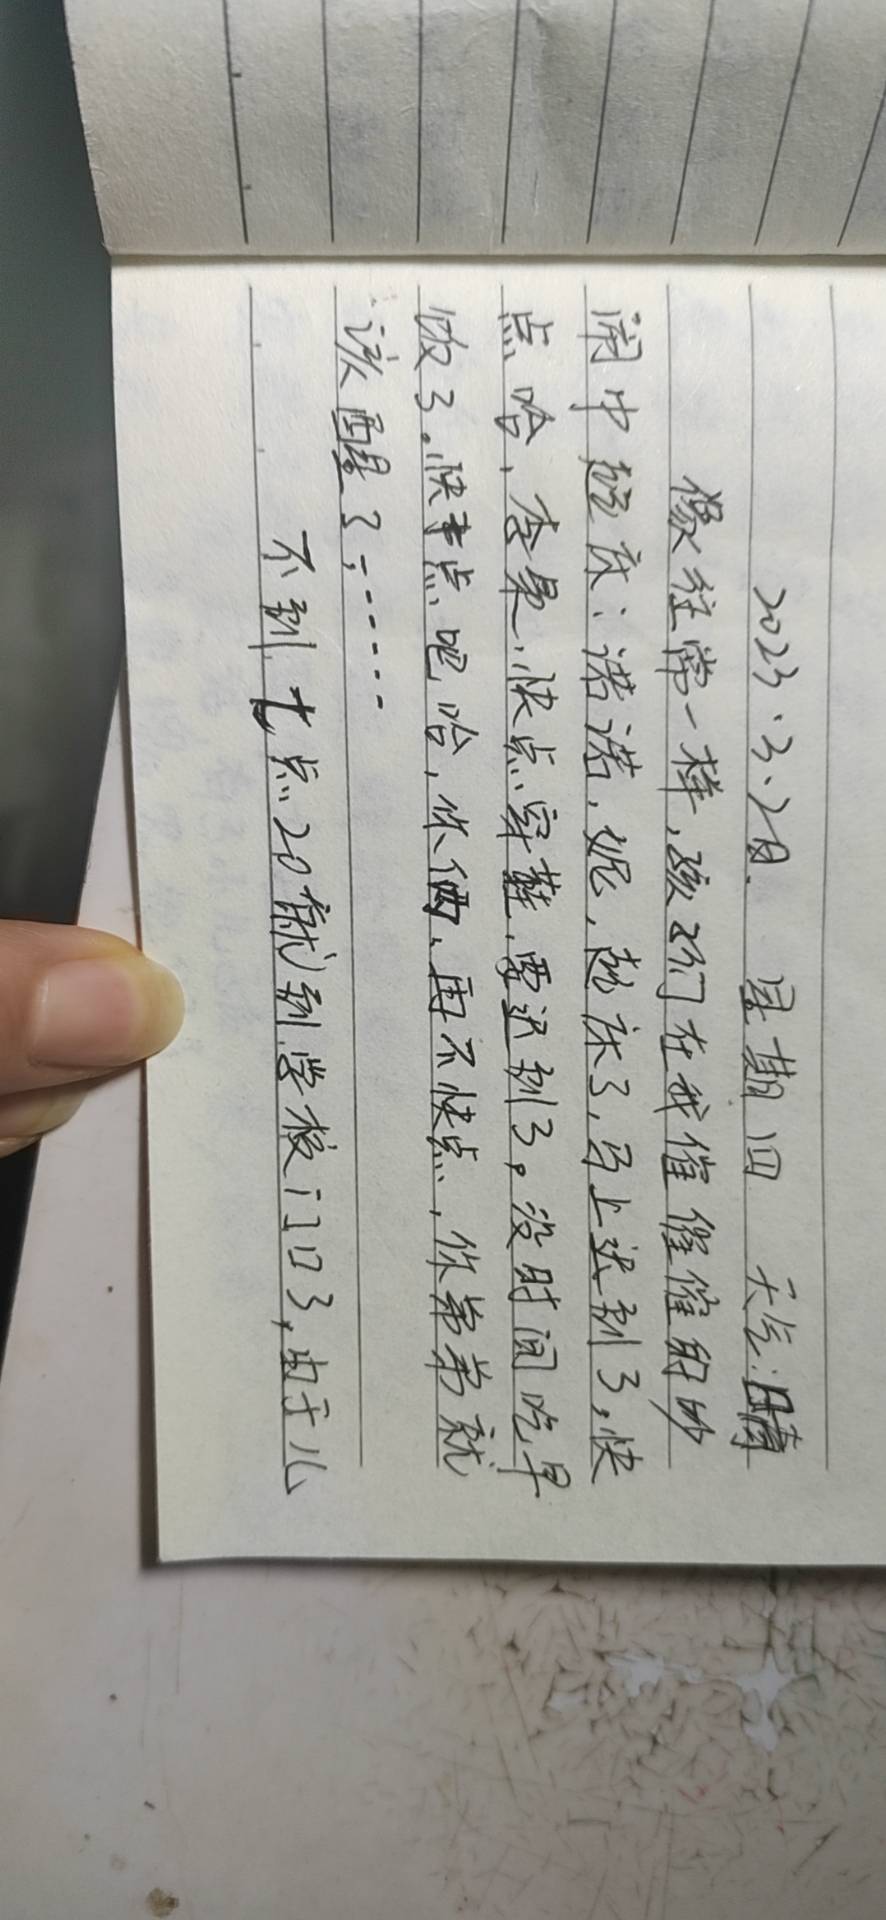 2023.3.2日. 星期四 天气:晴
像往常一样,孩子们在我催催催的吵
闹中起床:诺诺,妮,起床了,马上迟到了,快
点哈,李果,快点穿鞋,要迟到了。没时间吃早
饭了。快点吧哈,你俩,再不快点,你弟弟就
该醒了,……
不到七点20就到学校门口了,由于儿